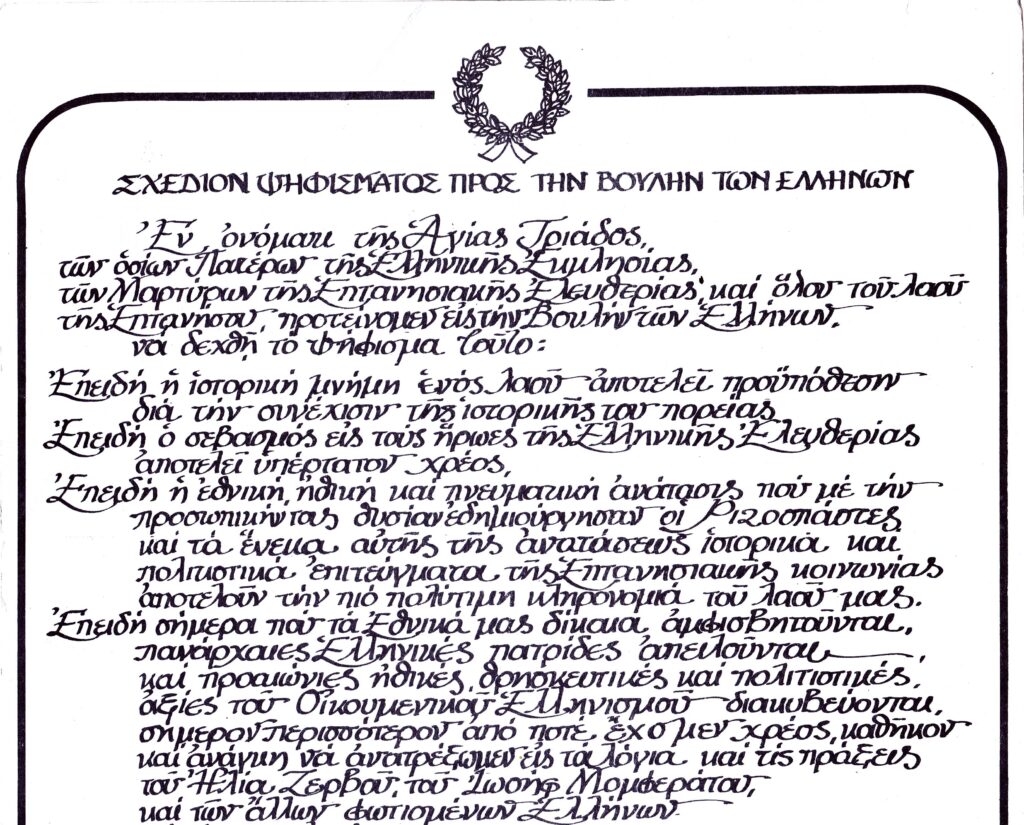 ΣΧΕΔΙΟΝ ΨΗΦΙΣΜΑΤΟΣ ΠΡΟΣ ΤΗΝ ΒΟΥΛΗΝ ΤΩΝ ΕΛΛΗΝΩΝ
Ἐν ὀνόματι τῆς Ἁγίας Τριάδος,
τῶν ὁσίων Πατέρων τῆς Ἑλληνικῆς Ἐκκλησίας,
τῶν Μαρτύρων τῆς Ἑπτανησιακῆς Ἐλευθερίας, καί ὅλου τοῦ λαοῦ
τῆς Ἑπτανήσου, προτείνομεν εἰς τήν Βουλήν τῶν Ἑλλήνων.
νά δεχθῆ τό ψήφισμα τοῦτο:
Ἐπειδή ἡ ἱστορική μνήμη ἑνός λαοῦ ἀποτελεῖ προϋπόθεσιν
διά τήν συνέχισιν τῆς ἱστορικῆς του πορείας
Ἐπειδή ὁ σεβασμός εἰς τούς ἥρωες τῆς Ἑλληνικῆς Ἐλευθερίας
ἀποτελεῖ ὑπέρτατον χρέος,
Ἐπειδή ἡ ἐθνική, ἠθική καί πνευματική ἀνάτασις πού μέ τήν
προσωπικήν τους θυσίαν ἐδημιούργησαν οἱ Ριζοσπάστες
καί τά ἕνεκα αὐτῆς τῆς ἀνατάσεως ἱστορικά και
πολιτιστικά ἐπιτεύγματα τῆς Ἑπτανησιακῆς κοινωνίας
ἀποτελοῦν τήν πιό πολύτιμη κληρονομιά τοῦ λαοῦ μας.
Ἐπειδή σήμερα πού τά Ἐθνικά μας δίκαια ἀμφισβητοῦνται,
πανάρχαιες Ἑλληνικές πατρίδες ἀπειλοῦνται,
καί προαιώνιες ἠθικές, θρησκευτικές καί πολιτιστικές,
ἀξίες τοῦ Οἰκουμενικοῦ Ἑλληνισμοῦ διακυβεύονται,
σήμερον περισσότερον ἀπό ποτέ ἔχομεν χρέος, καθῆκον
καί ἀνάγκη νά ἀνατρέξωμεν εἰς τά λόγια καί τίς πράξεις
τοῦ Ἠλία Ζερβοῦ, τοῦ Ἰωσήφ Μομφεράτου,
καί τῶν ἄλλων φωτισμένων Ἑλλήνων